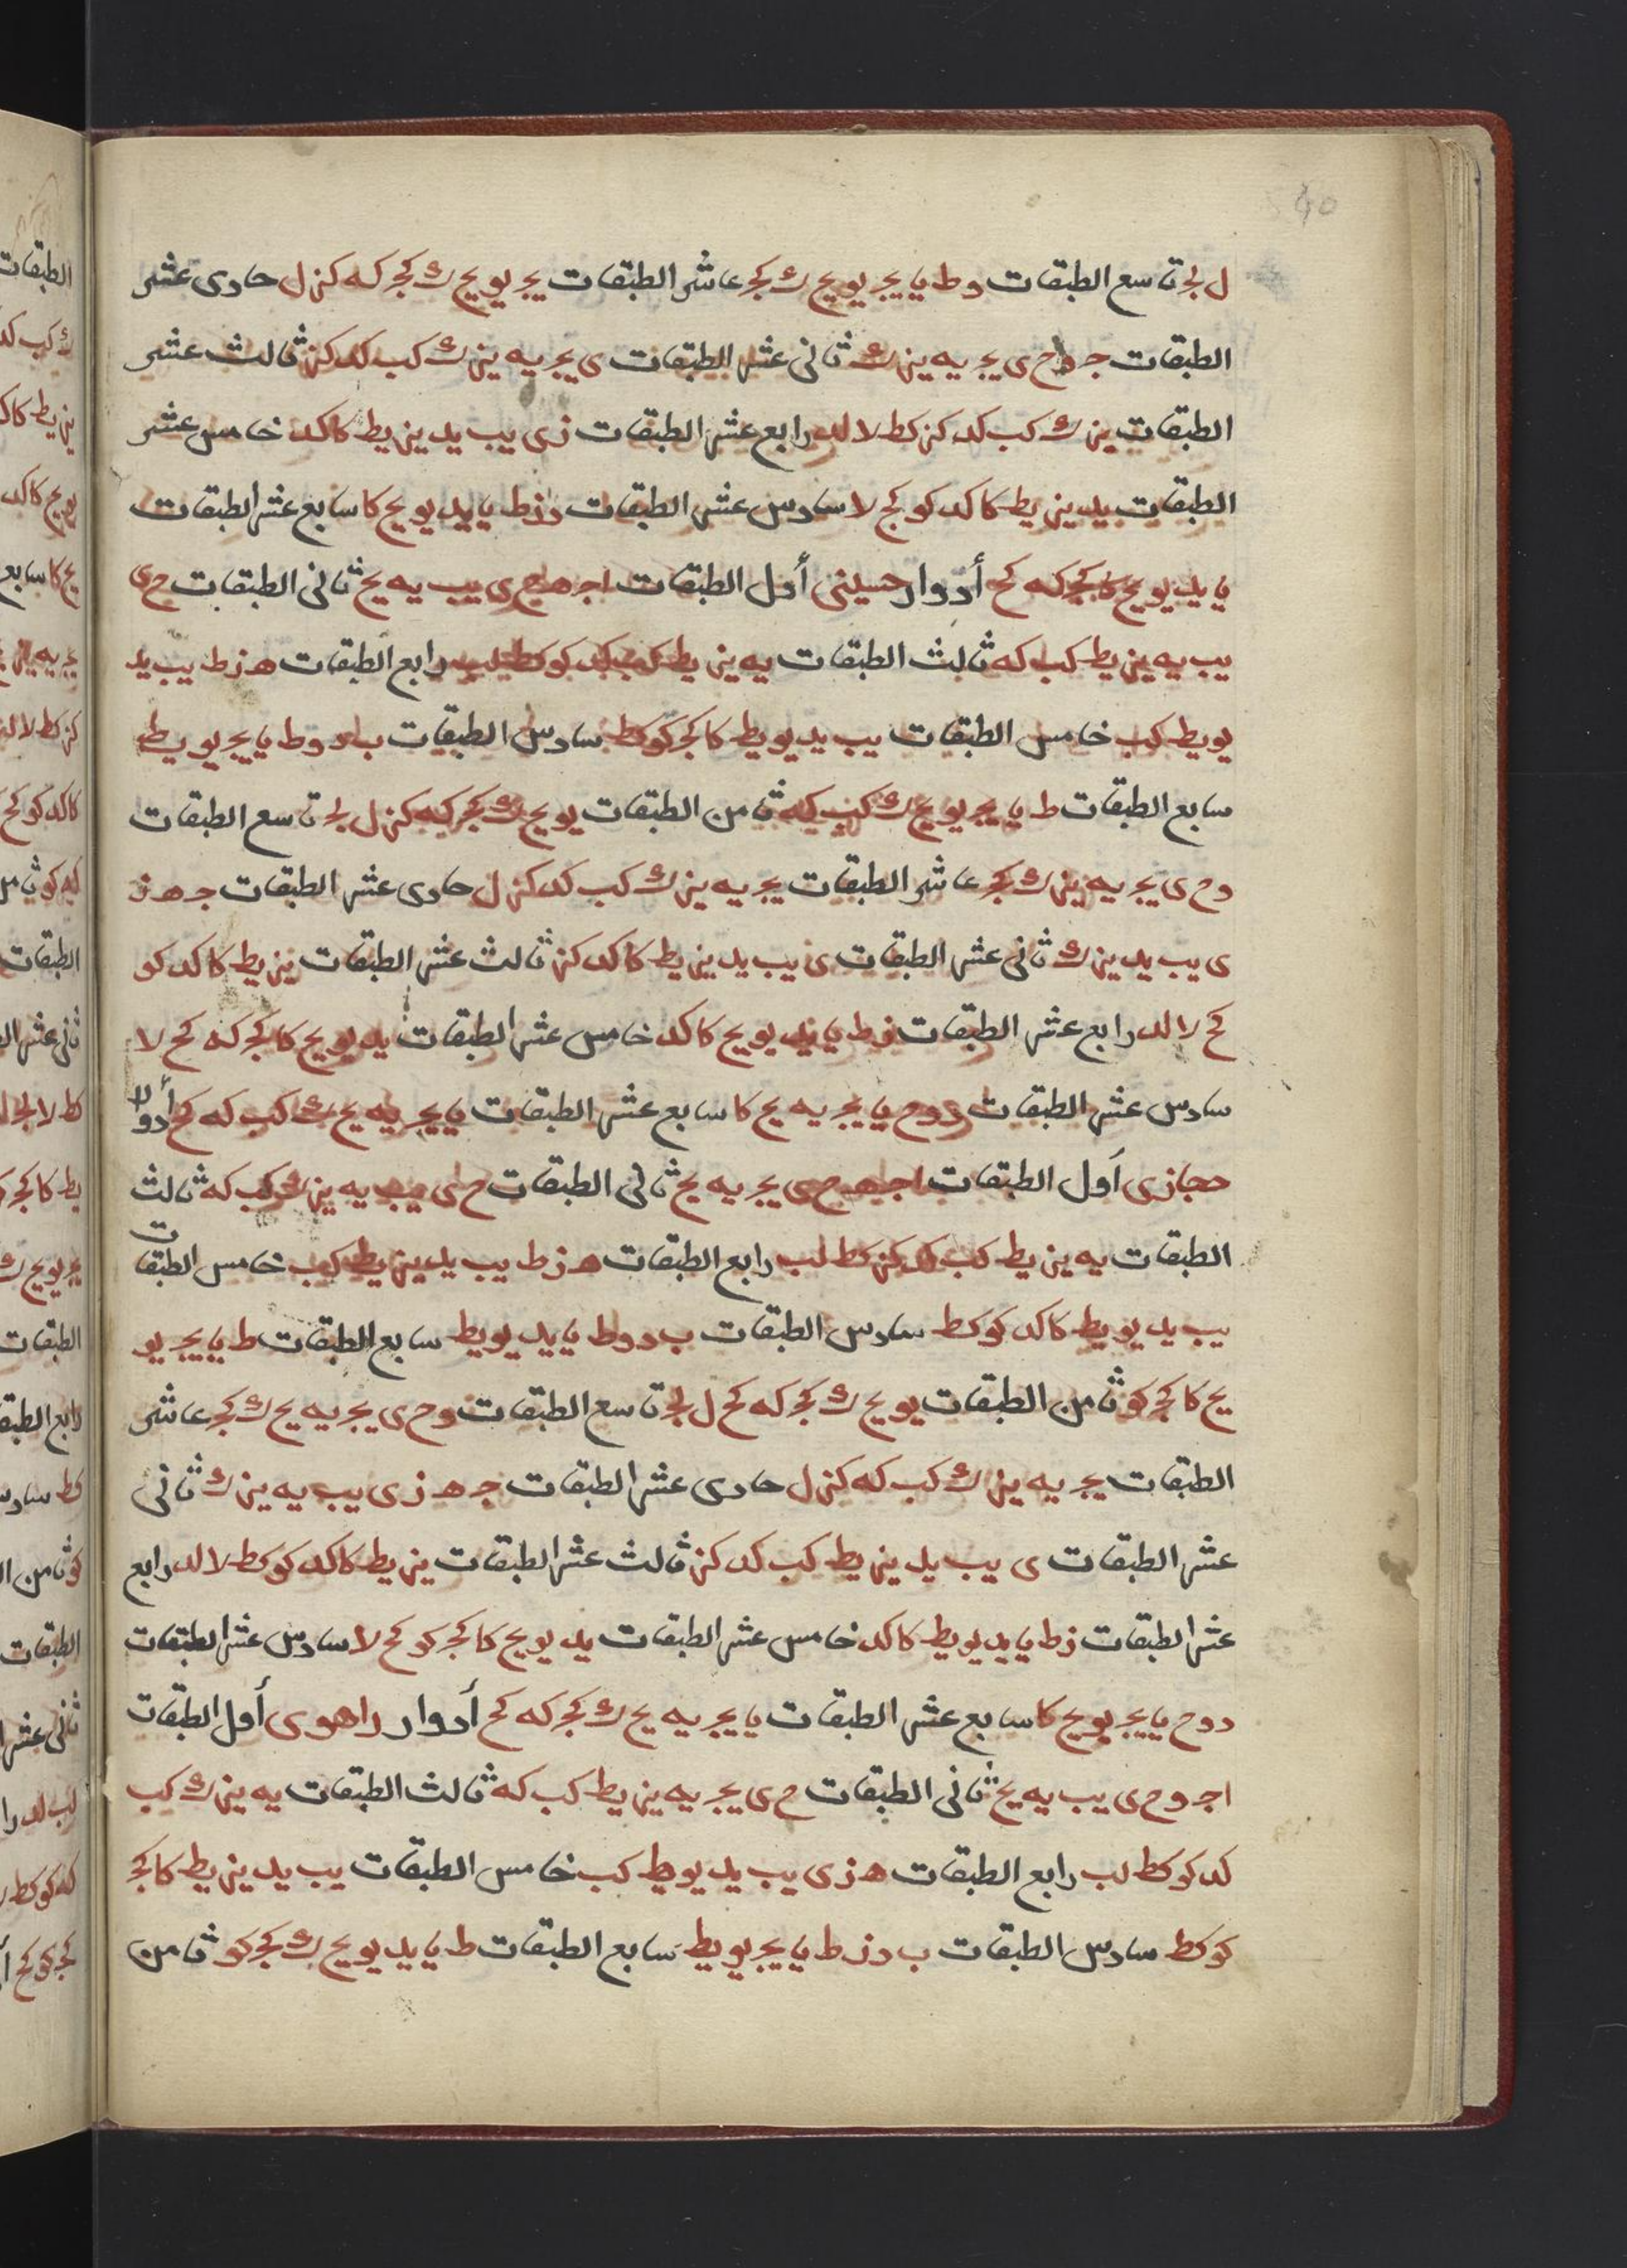 ل لج تاسع الطبقات و ط يا يج يو يح ك كج عاشر الطبقات يج يو يح ك كج كه كز ل حادى عشر
الطبقات ج و ح ى يج يه يز ك ثانى عشر الطبقات ى يج يه يز ك كب كد كز ثالث عشر
الطبقات يز ك كب كد كز كط لا لد رابع عشر الطبقات ز ى يب يد يز يط كا كد خامس عشر
الطبقات يد يز يط كا كد كو كح لا سادس عشر الطبقات د ز ط يا يد يو يح كا سابع عشر الطبقات
يا يد يو يح كا كج كه كح أدوار حسينى أول الطبقات ا ج ه ح ى يب يه يح ثانى الطبقات ح ى
يب يه يز يط كب كه ثالث الطبقات يه يز يط كب كد كو كط لب رابع الطبقات ه ز ط يب يد
يو يط كب خامس الطبقات يب يد يو يط كا كج كو كط سادس الطبقات ب د و ط يا يج يو يط
سابع الطبقات ط يا يج يو يح ك كب كه ثامن الطبقات يو يح ك كج كه كز ل لج تاسع الطبقات
و ح ى يج يه يز ك كج عاشر الطبقات يج يه يز ك كب كد كز ل حادى عشر الطبقات ج ه ز
ى يب يد يز ك ثانى عشر الطبقات ى يب يد يز يط كا كد كز ثالث عشر الطبقات يز يط كا كد كو
كح لا لد رابع عشر الطبقات ز ط يا يد يو يح كا كد خامس عشر الطبقات يد يو يح كا كج كه كح لا
سادس عشر الطبقات د و ح يا يج يه يح كا سابع عشر الطبقات يا يج يه يح ك كب كه كح أدوار
حجازى أول الطبقات ا ج ه ح ى يج يه يح ثانى الطبقات ح ى يب يه يز ك كب كه ثالث
الطبقات يه يز يط كب كد كز كط لب رابع الطبقات ه ز ط يب يد يز يط كب خامس الطبقات
يب يد يو يط كا كد كو كط سادس الطبقات ب د و ط يا يد يو يط سابع الطبقات ط يا يج يو
يح كا كج كو ثامن الطبقات يو يح ك كج كه كح ل لج تاسع الطبقات و ح ى يج يه يح ك كج عاشر
الطبقات يج يه يز ك كب كه كز ل حادى عشر الطبقات ج ه ز ى يب يه يز ك ثانى
عشر الطبقات ى يب يد يز يط كب كد كز ثالث عشر الطبقات يز يط كا كد كو كط لا لد رابع
عشر الطبقات ز ط يا يد يو يط كا كد خامس عشر الطبقات يد يو يح كا كج كو كح لا سادس عشر الطبقات
د و ح يا يج يو يح كا سابع عشر الطبقات يا يج يه يح ك كج كه كح أدوار راهوى أول الطبقات
ا ج و ح ى يب يه يح ثانى الطبقات ح ى يج يه يز يط كب كه ثالث الطبقات يه يز ك كب
كد كو كط لب رابع الطبقات ه ز ى يب يد يو يط كب خامس الطبقات يب يد يز يط كا كج
كو كط سادس الطبقات ب د ز ط يا يج يو يط سابع الطبقات ط يا يد يو يح ك كج كو ثامن